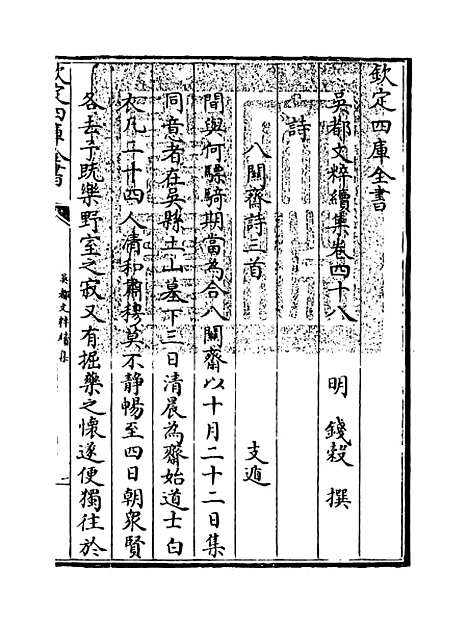 欽定四庫全書
吳都文粹續集卷四十八
明 錢穀 撰
詩
八關齋詩三首
支遁
間與何驃騎期當為合八關齋以十月二十二日集
同意者在吳縣土山墓下三日清晨為齋始道士白
衣凡二十四人清和肅穆莫不静暢至四日朝衆賢
各去予既樂野室之寂又有掘藥之懷遂便獨往於
欽定四庫全書
吳都文粹續集
一